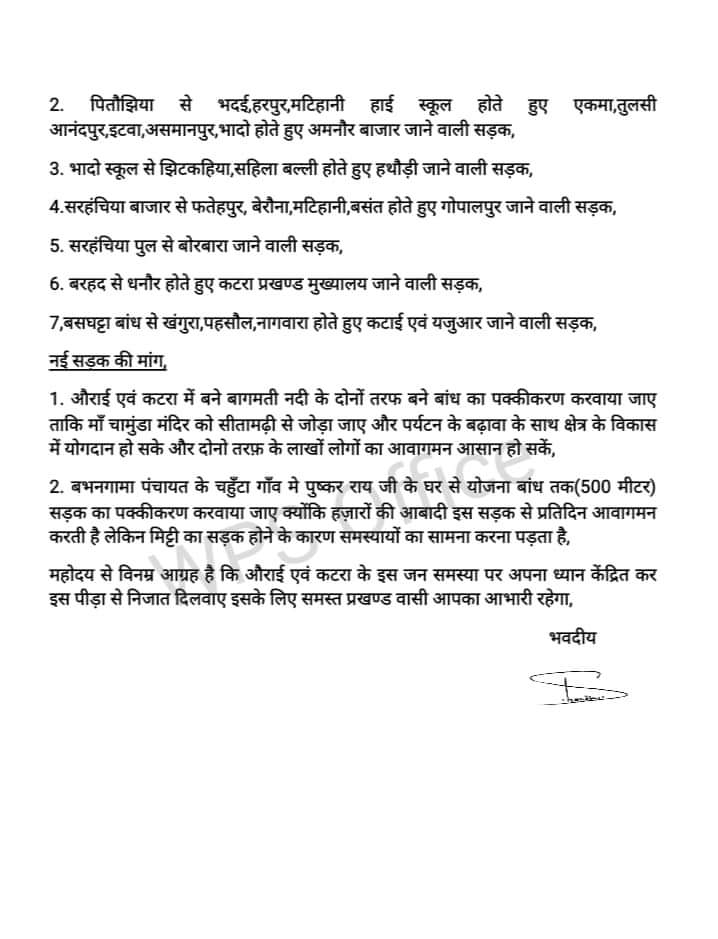 2. पितौझिया से भदई,हरपुर,मटिहानी हाई स्कूल होते हुए एकमा,तुलसी
आनंदपुर,इटवा,असमानपुर,भादो होते हुए अमनौर बाजार जाने वाली सड़क,
3. भादो स्कूल से झिटकहिया,सहिला बल्ली होते हुए हथौड़ी जाने वाली सड़क,
4.सरहंचिया बाजार से फतेहपुर, बेरौना,मटिहानी,बसंत होते हुए गोपालपुर जाने वाली सड़क,
5. सरहंचिया पुल से बोरबारा जाने वाली सड़क,
6. बरहद से धनौर होते हुए कटरा प्रखण्ड मुख्यालय जाने वाली सड़क,
7,बसघट्टा बांध से खंगुरा,पहसौल,नागवारा होते हुए कटाई एवं यजुआर जाने वाली सड़क,
नई सड़क की मांग,
1. औराई एवं कटरा में बने बागमती नदी के दोनों तरफ बने बांध का पक्कीकरण करवाया जाए
ताकि माँ चामुंडा मंदिर को सीतामढ़ी से जोड़ा जाए और पर्यटन के बढ़ावा के साथ क्षेत्र के विकास
में योगदान हो सके और दोनो तरफ़ के लाखों लोगों का आवागमन आसान हो सकें,
2. बभनगामा पंचायत के चहुँटा गाँव मे पुष्कर राय जी के घर से योजना बांध तक(500 मीटर)
सड़क का पक्कीकरण करवाया जाए क्योंकि हज़ारों की आबादी इस सड़क से प्रतिदिन आवागमन
करती है लेकिन मिट्टी का सड़क होने के कारण समस्यायों का सामना करना पड़ता है,
महोदय से विनम्र आग्रह है कि औराई एवं कटरा के इस जन समस्या पर अपना ध्यान केंद्रित कर
इस पीड़ा से निजात दिलवाए इसके लिए समस्त प्रखण्ड वासी आपका आभारी रहेगा,
भवदीय
WPS Office